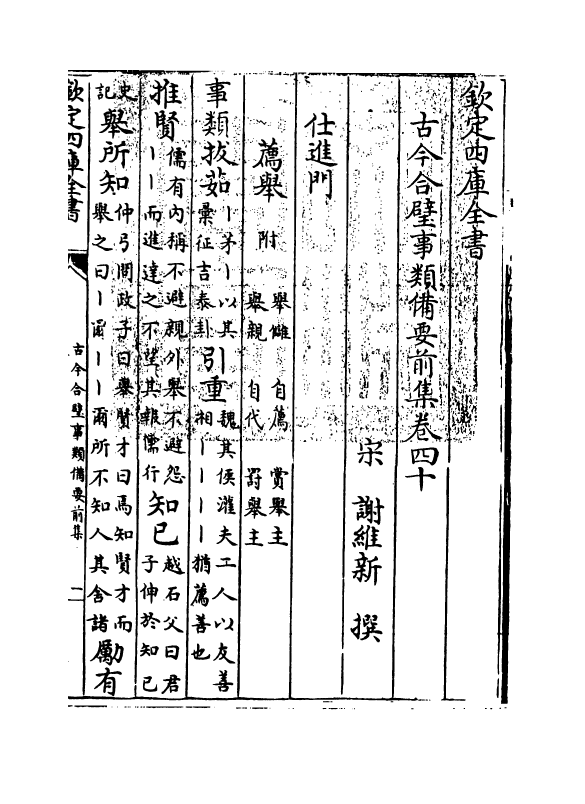 欽定四庫全書
古今合璧事類備要前集卷四十
宋 謝維新 撰
仕進門
薦舉 附 舉讎 自薦 賞舉主
舉親 自代 罰舉主
事類拔茹 丨茅丨以其
彙征吉泰卦
引重 魏其侯灌夫工人以友善
相丨丨丨猶薦善也
推賢 儒有内稱不避親外舉不避怨
丨丨而進達之不望其報儒行
知已 越石父曰君
子伸於知已
史記
舉所知 仲弓問政子曰舉賢才曰焉知賢才而
舉之曰丨爾丨丨爾所不知人其舍諸
勵有
欽定四庫全書
古今合璧事類備要前集
二